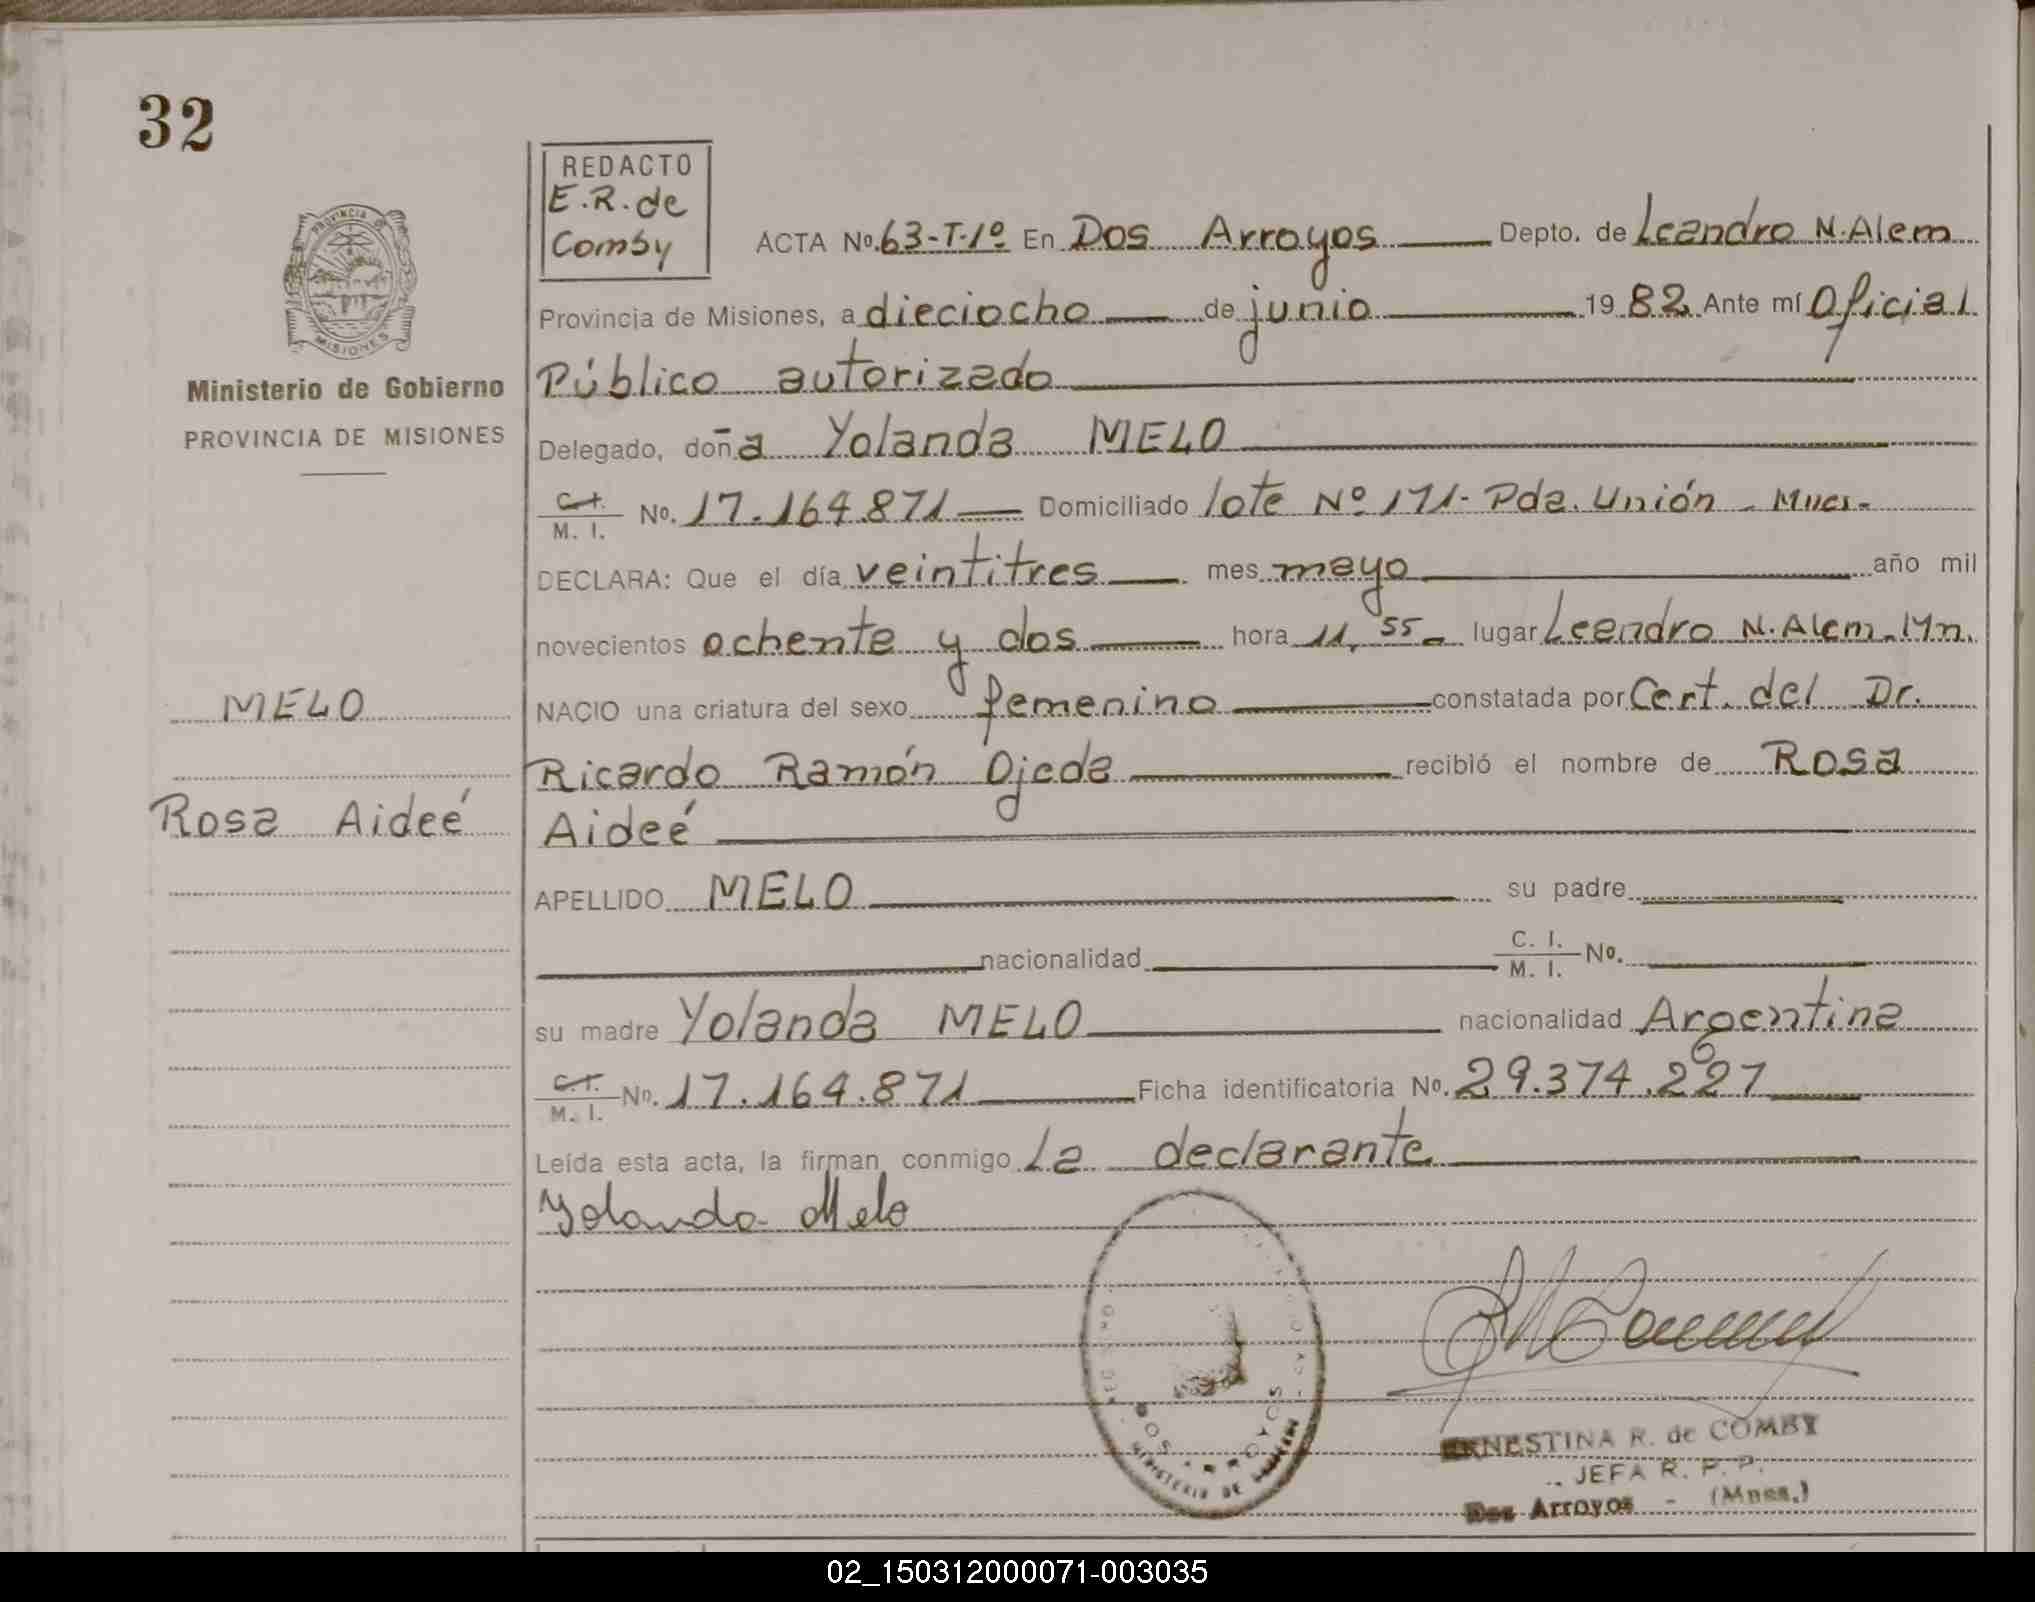 32
REDACTO
E.R. de
Comby
PROVINCIA DE
MISIONES
Ministerio de Gobierno
PROVINCIA DE MISIONES
ACTA Nº 63-T-1º En Dos Arroyos Depto. de Leandro N. Alem
Provincia de Misiones, a dieciocho de junio 1982 Ante mí Oficial
Público autorizado
Delegado, doña Yolanda MELO
C.I. / M. I. No. 17.164.871 Domiciliado lote Nº 171- Pda. Unión - Mnes-
DECLARA: Que el día veintitres mes mayo año mil
novecientos ochenta y dos hora 11,55 lugar Leandro N. Alem. Mn.
MELO
NACIO una criatura del sexo femenino constatada por Cert. del Dr.
Ricardo Ramón Ojeda recibió el nombre de Rosa
Rosa Aideé
Aideé
APELLIDO MELO su padre
nacionalidad C. I. / M. I. No.
su madre Yolanda MELO nacionalidad Argentina
C.I. / M. I. No. 17.164.871 Ficha identificatoria No. 29.374.227
Leída esta acta, la firman conmigo la declarante
Yolanda Melo
DOS ARROYOS
MINISTERIO DE
ERNESTINA R. de COMBY
JEFA R. P. P.
Dos Arroyos - (Mnes.)
02_150312000071-003035